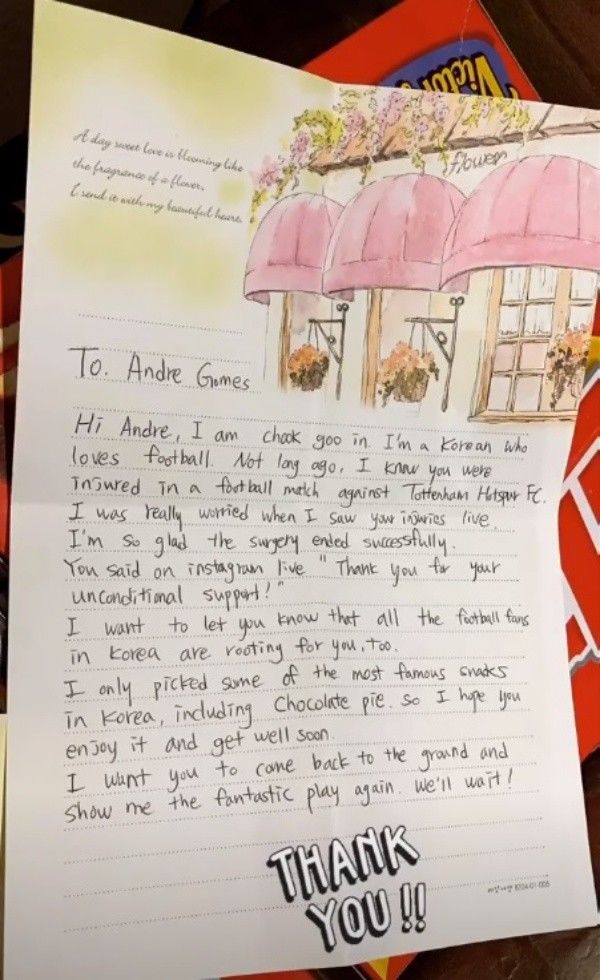 Victor
A day sweet love is blooming like
the fragrance of a flower.
I send it with my beautiful heart.
flower
To. Andre Gomes
Hi Andre, I am chook goo in. I'm a Korean who
loves football. Not long ago, I know you were
injured in a football match against Tottenham Hotspur FC.
I was really worried when I saw your injuries live.
I'm so glad the surgery ended successfully.
You said on instagram live " Thank you for your
unconditional support! "
I want to let you know that all the football fans
in Korea are rooting for you, too.
I only picked some of the most famous snacks
in Korea, including Chocolate pie. so I hope you
enjoy it and get well soon.
I want you to come back to the ground and
show me the fantastic play again. We'll wait!
THANK
YOU!!